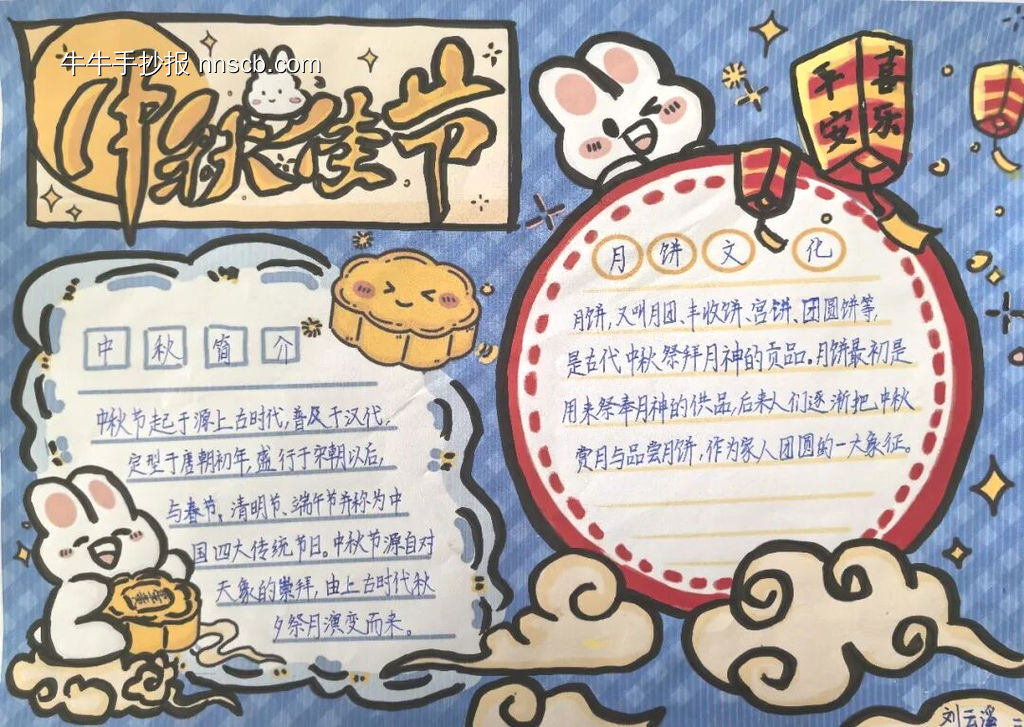 牛牛手抄报 nnscb.com
中秋佳节
平安
喜乐
中秋简介
中秋节起于源上古时代,普及于汉代,
定型于唐朝初年,盛行于宋朝以后,
与春节、清明节、端午节并称为中
国四大传统节日。中秋节源自对
天象的崇拜,由上古时代秋
夕祭月演变而来。
月饼文化
月饼,又叫月团、丰收饼、宫饼、团圆饼等,
是古代中秋祭拜月神的贡品。月饼最初是
用来祭奉月神的供品,后来人们逐渐把中秋
赏月与品尝月饼,作为家人团圆的一大象征。
刘云溪